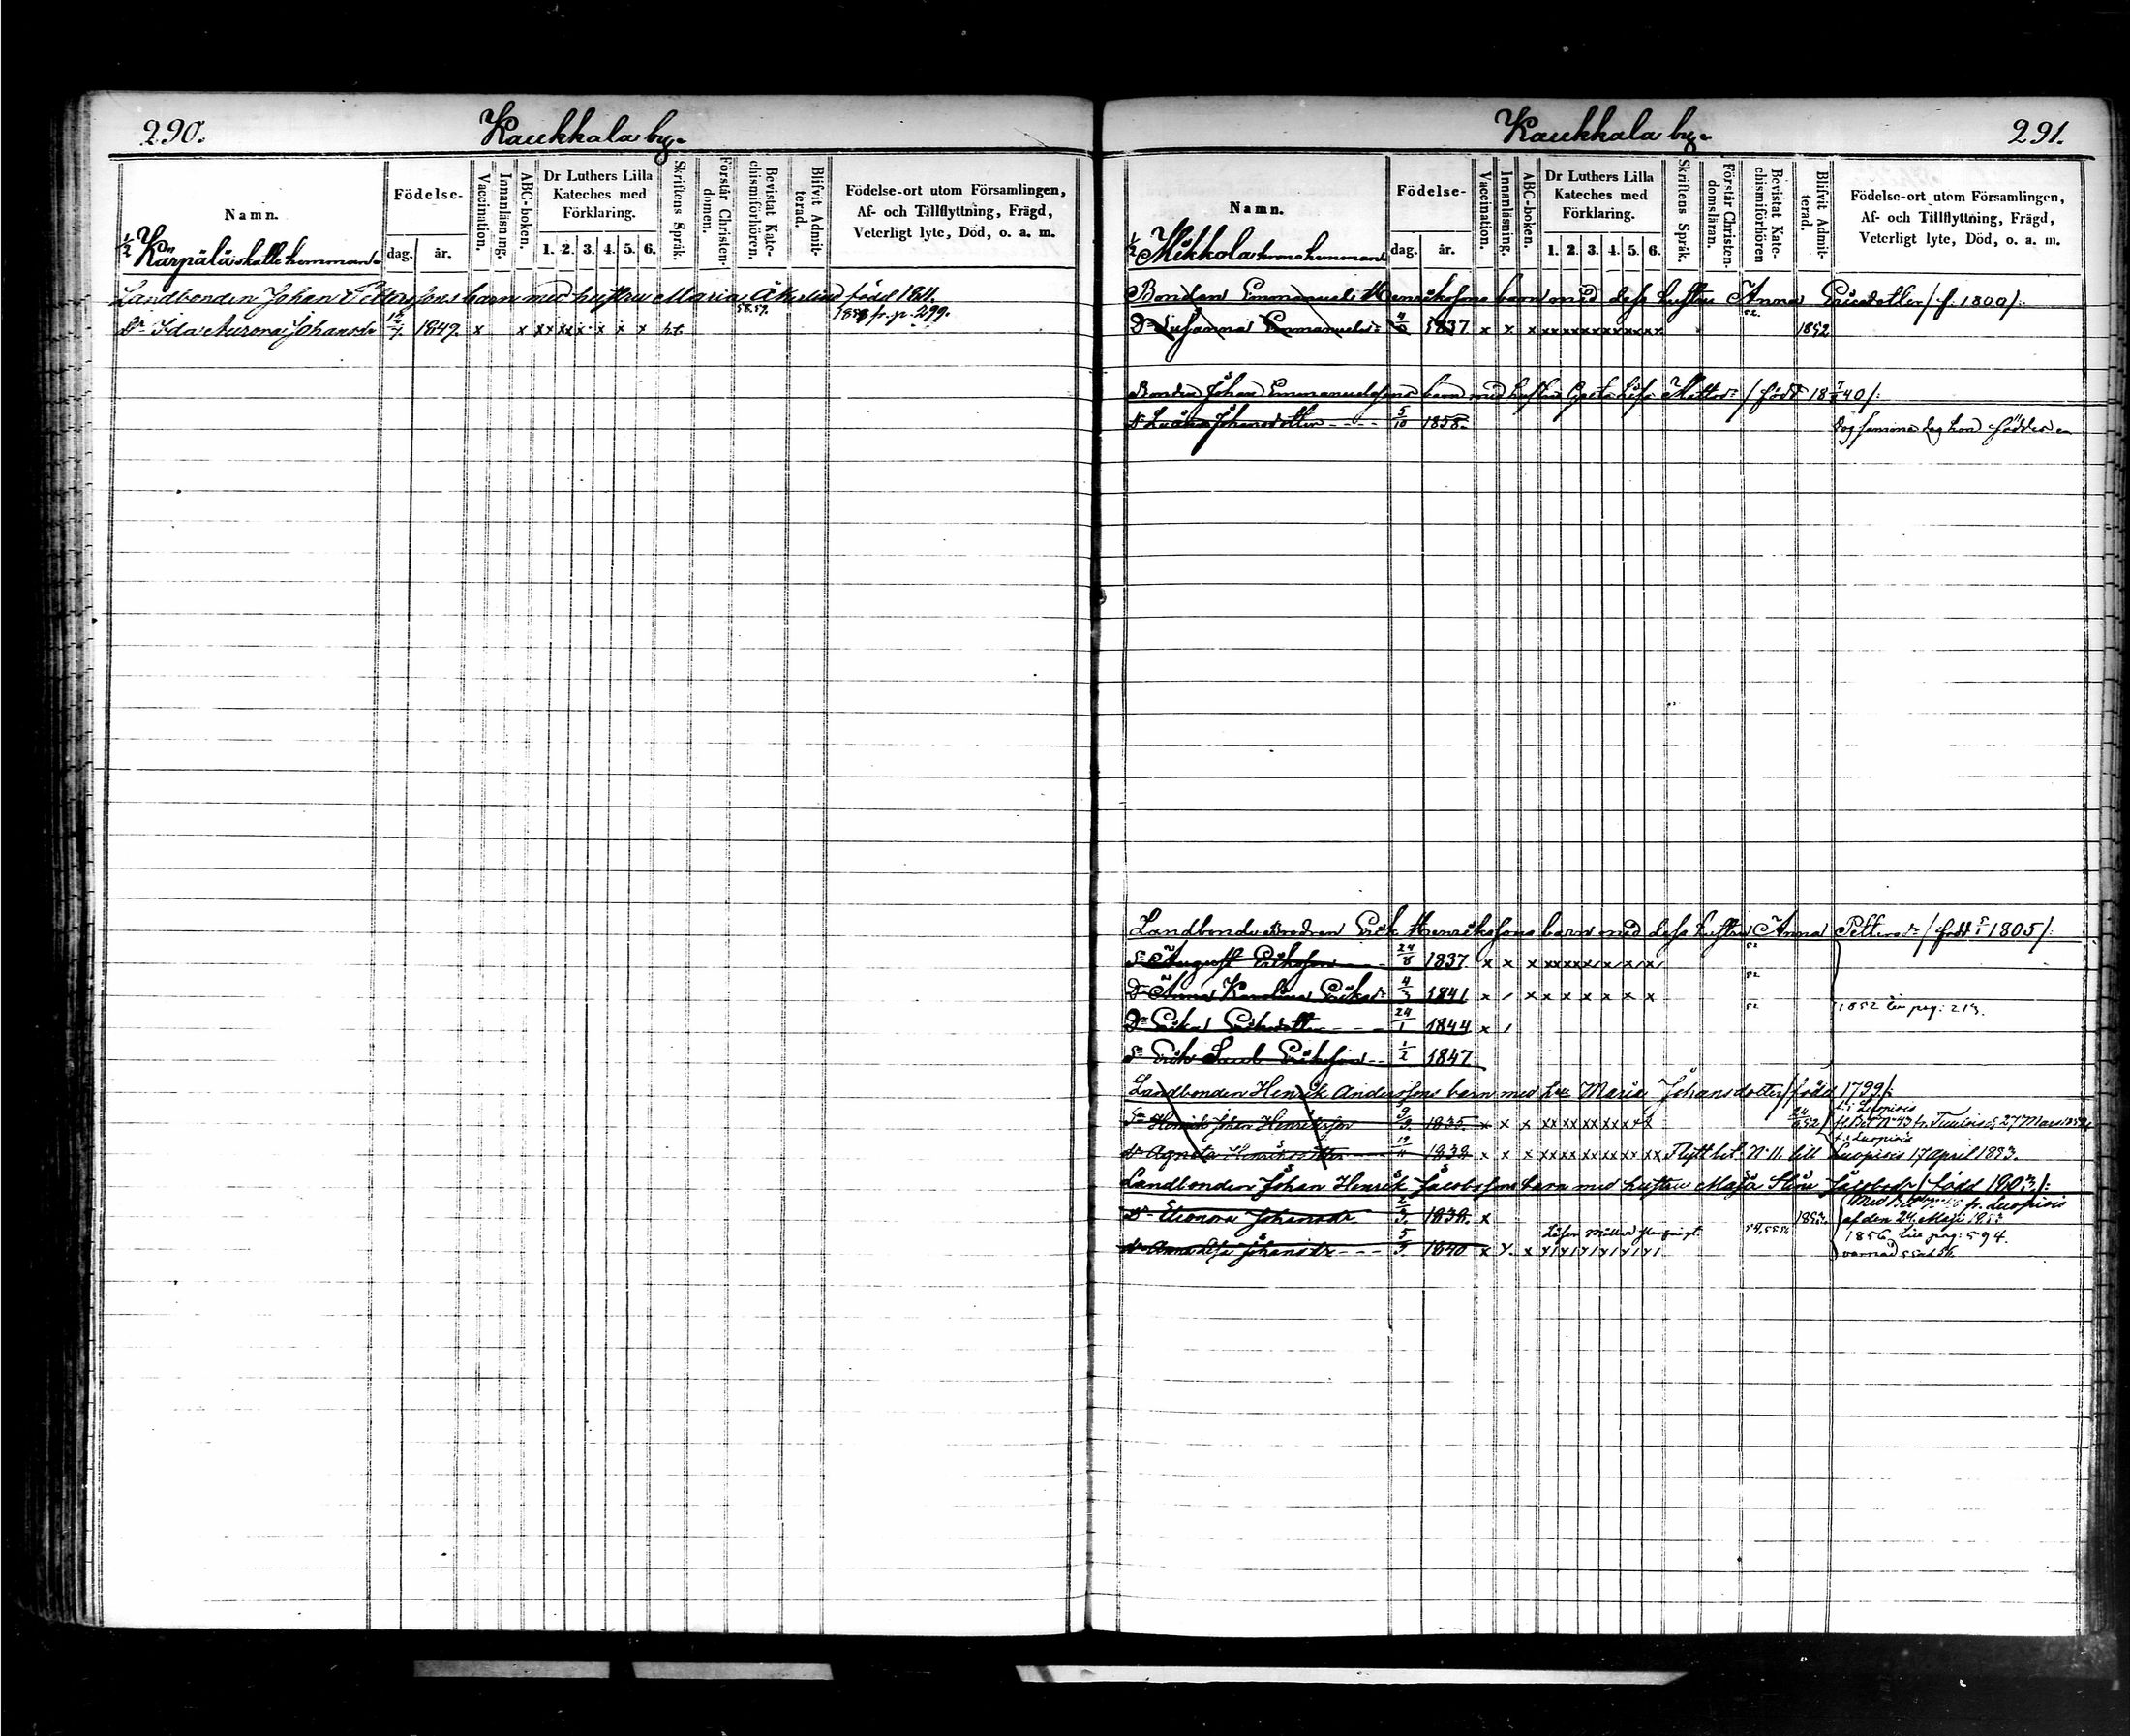 290. Kaukkala by.
Namn. Födelse- dag. år. Vaccination. Innanläsning. ABC-boken. Dr Luthers Lilla Kateches med Förklaring. 1. 2. 3. 4. 5. 6. Skriftens Språk. Förstår Christendomen. Bevistat Katechismiförhören. Blifvit Admitterad. Födelse-ort utom Församlingen, Af- och Tillflyttning, Frägd, Veterligt lyte, Död, o. a. m.
1/2 Kärpälä skatte hemman
Landbonden Johan Pettersons barn med hustru Maria Åkerlind född 1811.
58.59. 1858 fr. p. 299.
Dr Ida Aurora Johansdr 1849. x x xx xx x x x x
Kaukkala by. 291.
Namn. Födelse- dag. år. Vaccination. Innanläsning. ABC-boken. Dr Luthers Lilla Kateches med Förklaring. 1. 2. 3. 4. 5. 6. Skriftens Språk. Förstår Christendomsläran. Bevistat Katechismiförhören Blifvit Admitterad. Födelse-ort utom Församlingen, Af- och Tillflyttning, Frägd, Veterligt lyte, Död, o. a. m.
1/2 Mikkola krono hemman
Bonden Emmanuel Henrikssons barn med dess hustru Anna Ericsdotter /f. 1800/:
52.
Dr Susanna Emmanuelsdr 1837 x x x xxxxxxxxxxxx 1852
Bonden Johan Emmanuelssons barn med hustru Greta Lisa Mattsdr /född 18 40/:
Dr Johansdotter 5/10 1858. Dog samma dag hon föddes
Landbonde Erik Henrikssons barn med dess hustru Anna Pettersdr /född 1805/:
52
Sn August Eriksson 24/8 1837 x x x xxxxxxxxx
52
Dr Anna Karolina Eriksdr 4/3 1841 x / x x x x x x x
52 1852 till pag: 213.
Dr Erika Eriksdotter 24/1 1844 x /
Sn Erik Eriksson 1/2 1847
Landbonden Henrik Anderssons barn med hu Maria Johansdotter /född 1799/:
f. i Luopiois
Sn Henrik Johan Henriksson 1835. x x x xxxxxxxxxx fl. Bet No 43 fr. Tuulois 27 Mars 1852
f. i Luopiois
dr Agneta Henriksdotter 19/11 1838 x x x xxxxxxxxxxxx Flytt bet. No 11. till Luopiois 17 april 1853.
Landbonden Johan Henrik Jacobssons barn med hustru Maja Stina Jacobsdr /född 1803/:
Dr Eleonora Johansdr 2/3. 1838. x 1853. Med Bet fr. Luopiois
af den 24. Maji
1856 till pag: 594.
dr Anna Lisa Johansdr 5/5. 1840 x x. x